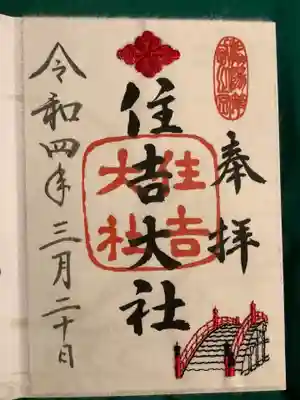 奉拝
住吉大社
住吉
大社
令和四年三月二十日